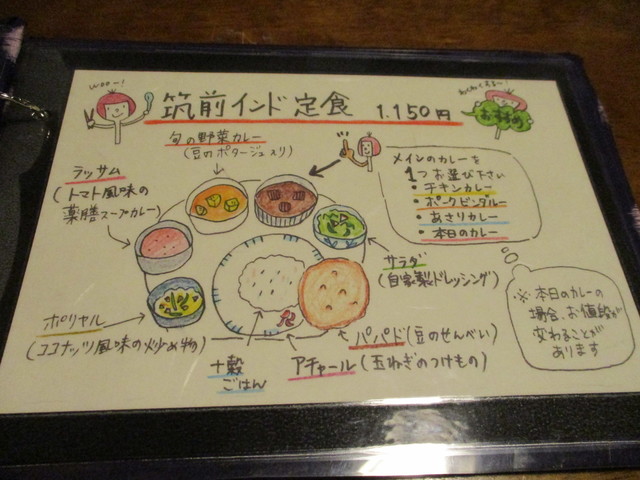 woo~!
筑前インド定食 1.150円
わくわくするー!
おすすめ
旬の野菜カレー
(豆のポタージュ入り)
ラッサム
(トマト風味の
薬膳スープカレー)
メインのカレーを
1つお選び下さい
・チキンカレー
・ポークビンダルー
・あさりカレー
・本日のカレー
サラダ
(自家製ドレッシング)
※本日のカレーの
場合、お値段が
変わることが
あります
ポリヤル
(ココナッツ風味の炒め物)
十穀
ごはん
パパド(豆のせんべい)
アチャール(玉ねぎのつけもの)